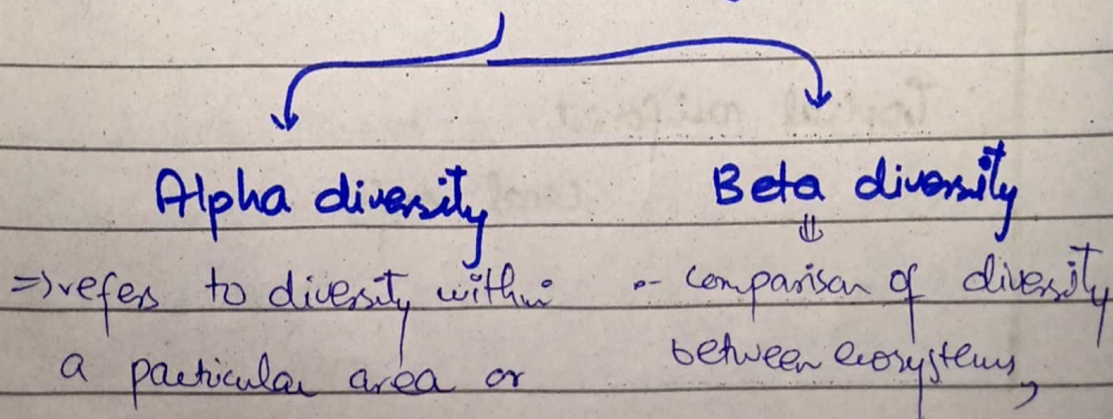 Alpha diversity
⇒ refers to diversity within
a particular area or
Beta diversity
⇓
- comparison of diversity
between ecosystems,